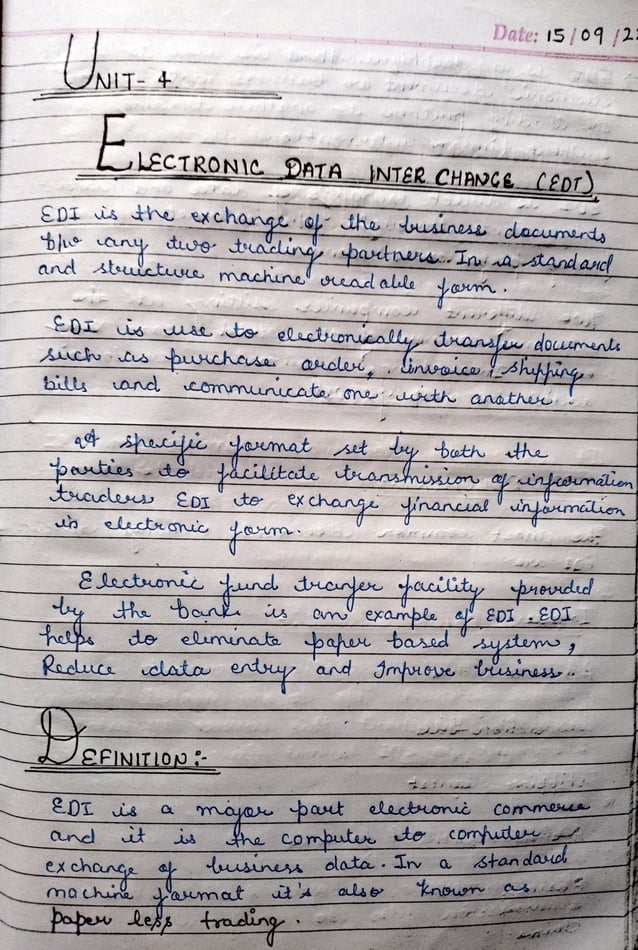 Date: 15/09/2
UNIT- 4
ELECTRONIC DATA INTER CHANGE (EDI)
EDI is the exchange of the business documents
b/w any two trading partners. In a standard
and structure machine readable form.
EDI is use to electronically transfer documents
such as purchase order, invoice, shipping
bills and communicate one with another
specific format set by both the
parties to facilitate transmission of information
traders EDI to exchange financial information
in electronic form.
Electronic fund tranfer facility provided
by the bank is an example of EDI. EDI
helps to eliminate paper based system,
Reduce data entry and Improve business.
DEFINITION:-
EDI is a major part electronic commerce
and it is the computer to computer
exchange of business data. In a standard
machine format it's also known as
paper less trading.